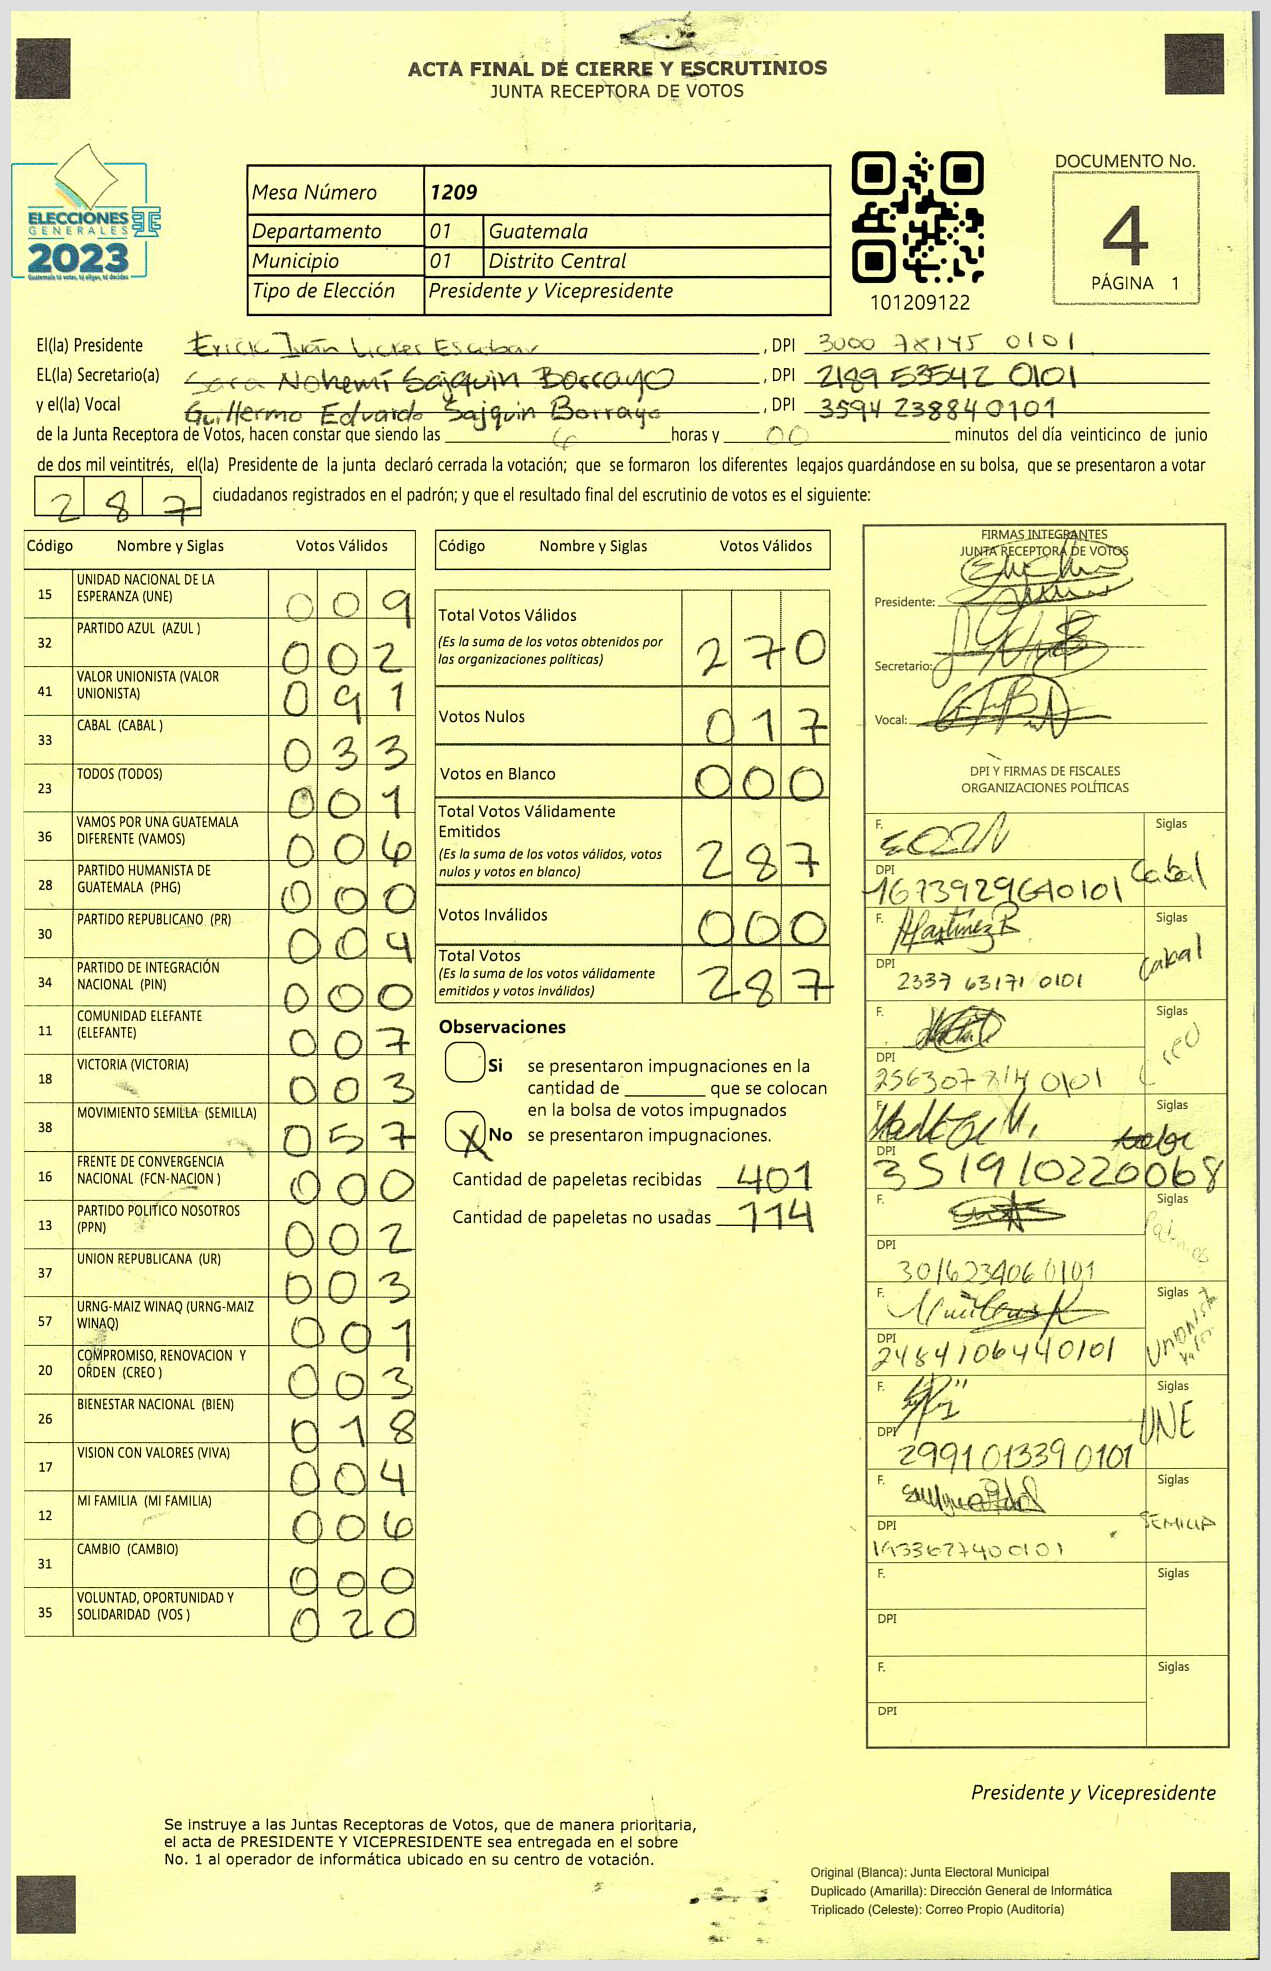 ACTA FINAL DE CIERRE Y ESCRUTINIOS
JUNTA RECEPTORA DE VOTOS
ELECCIONES
GENERALES
2023
Mesa Número 1209
Departamento 01 Guatemala
Municipio 01 Distrito Central
Tipo de Elección Presidente y Vicepresidente
101209122
DOCUMENTO No.
4
PÁGINA 1
El(la) Presidente Erick Iván Escobar , DPI 3000 78145 0101
EL(la) Secretario(a) Sara Nohemí Sajquin Borrayo , DPI 2189 53542 0101
y el(la) Vocal Guillermo Eduardo Sajquin Borrayo , DPI 3594 23884 0101
de la Junta Receptora de Votos, hacen constar que siendo las 6 horas y 00 minutos del día veinticinco de junio
de dos mil veintitrés, el(la) Presidente de la junta declaró cerrada la votación; que se formaron los diferentes legajos guardándose en su bolsa, que se presentaron a votar
287 ciudadanos registrados en el padrón; y que el resultado final del escrutinio de votos es el siguiente:
Código Nombre y Siglas Votos Válidos
15 UNIDAD NACIONAL DE LA
ESPERANZA (UNE) 009
32 PARTIDO AZUL (AZUL ) 002
41 VALOR UNIONISTA (VALOR
UNIONISTA) 091
33 CABAL (CABAL ) 033
23 TODOS (TODOS) 001
36 VAMOS POR UNA GUATEMALA
DIFERENTE (VAMOS) 006
28 PARTIDO HUMANISTA DE
GUATEMALA (PHG) 000
30 PARTIDO REPUBLICANO (PR) 004
34 PARTIDO DE INTEGRACIÓN
NACIONAL (PIN) 000
11 COMUNIDAD ELEFANTE
(ELEFANTE) 007
18 VICTORIA (VICTORIA) 003
38 MOVIMIENTO SEMILLA (SEMILLA) 057
16 FRENTE DE CONVERGENCIA
NACIONAL (FCN-NACION ) 000
13 PARTIDO POLITICO NOSOTROS
(PPN) 002
37 UNION REPUBLICANA (UR) 003
57 URNG-MAIZ WINAQ (URNG-MAIZ
WINAQ) 001
20 COMPROMISO, RENOVACION Y
ORDEN (CREO ) 003
26 BIENESTAR NACIONAL (BIEN) 018
17 VISION CON VALORES (VIVA) 004
12 MI FAMILIA (MI FAMILIA) 006
31 CAMBIO (CAMBIO) 000
35 VOLUNTAD, OPORTUNIDAD Y
SOLIDARIDAD (VOS ) 020
Código Nombre y Siglas Votos Válidos
Total Votos Válidos
(Es la suma de los votos obtenidos por
las organizaciones políticas) 270
Votos Nulos 017
Votos en Blanco 000
Total Votos Válidamente
Emitidos
(Es la suma de los votos válidos, votos
nulos y votos en blanco) 287
Votos Inválidos 000
Total Votos
(Es la suma de los votos válidamente
emitidos y votos inválidos) 287
Observaciones
Si se presentaron impugnaciones en la
cantidad de ________ que se colocan
en la bolsa de votos impugnados
X No se presentaron impugnaciones.
Cantidad de papeletas recibidas 401
Cantidad de papeletas no usadas 114
FIRMAS INTEGRANTES
JUNTA RECEPTORA DE VOTOS
Presidente:
Secretario:
Vocal:
DPI Y FIRMAS DE FISCALES
ORGANIZACIONES POLÍTICAS
F. Siglas
Cabal
DPI
1673929640101
F. Martínez R Siglas
Cabal
DPI
2337 63171 0101
F. Siglas
DPI
256307814 0101
F. Siglas
DPI
3519102220068
F. Siglas
DPI
3016234060101
F. Siglas
UNIONISTA
Valor
DPI
2484106440101
F. Siglas
UNE
DPI
2991013390101
F. Siglas
SEMILLA
DPI
1933627400101
F. Siglas
DPI
F. Siglas
DPI
Presidente y Vicepresidente
Se instruye a las Juntas Receptoras de Votos, que de manera prioritaria,
el acta de PRESIDENTE Y VICEPRESIDENTE sea entregada en el sobre
No. 1 al operador de informática ubicado en su centro de votación.
Original (Blanca): Junta Electoral Municipal
Duplicado (Amarilla): Dirección General de Informática
Triplicado (Celeste): Correo Propio (Auditoría)